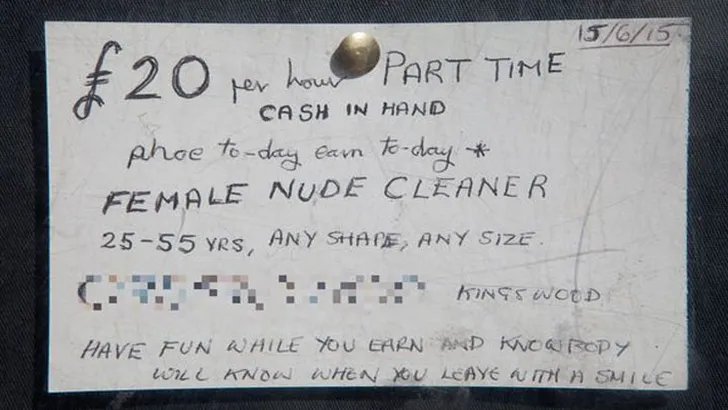 15/6/15
£20 per hour PART TIME
CASH IN HAND
phoe to-day earn to-day *
FEMALE NUDE CLEANER
25-55 YRS, ANY SHAPE, ANY SIZE.
KINGSWOOD
HAVE FUN WHILE YOU EARN AND KNOWBODY
WILL KNOW WHEN YOU LEAVE WITH A SMILE